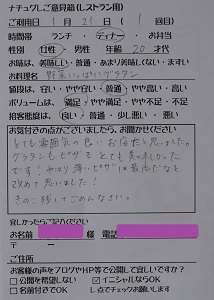 ナチュグレご意見箱(レストラン用)
ご利用日 1月21日(1回目)
時間帯 ランチ・ディナー・お弁当
性別 女性 男性 年齢 20 才代
お味は、美味しい・普通・あまり美味しくない・まずい
お料理名 野菜いっぱいグラタン
値段は、安い・やや安い・普通・やや高い・高い
ボリュームは、満足・やや満足・やや不足・不足
接客態度は、良い・普通・少し悪い・悪い
お気付きの点がございましたら、お聞かせください
とても雰囲気の良いお店だと思いました。
グラタンもピザもとても美味しかった
です!やはり薄いピザは最高だなと
改めて思いました!
きのこ残してごめんなさい。
宜しかったらご記入ください
お名前 様 電話
〒 ー
ご住所
お客様の声をブログやHP等で公開して宜しいですか?
公開を希望しない イニシャルならOK
名前付きでOK レ点でチェックお願いします